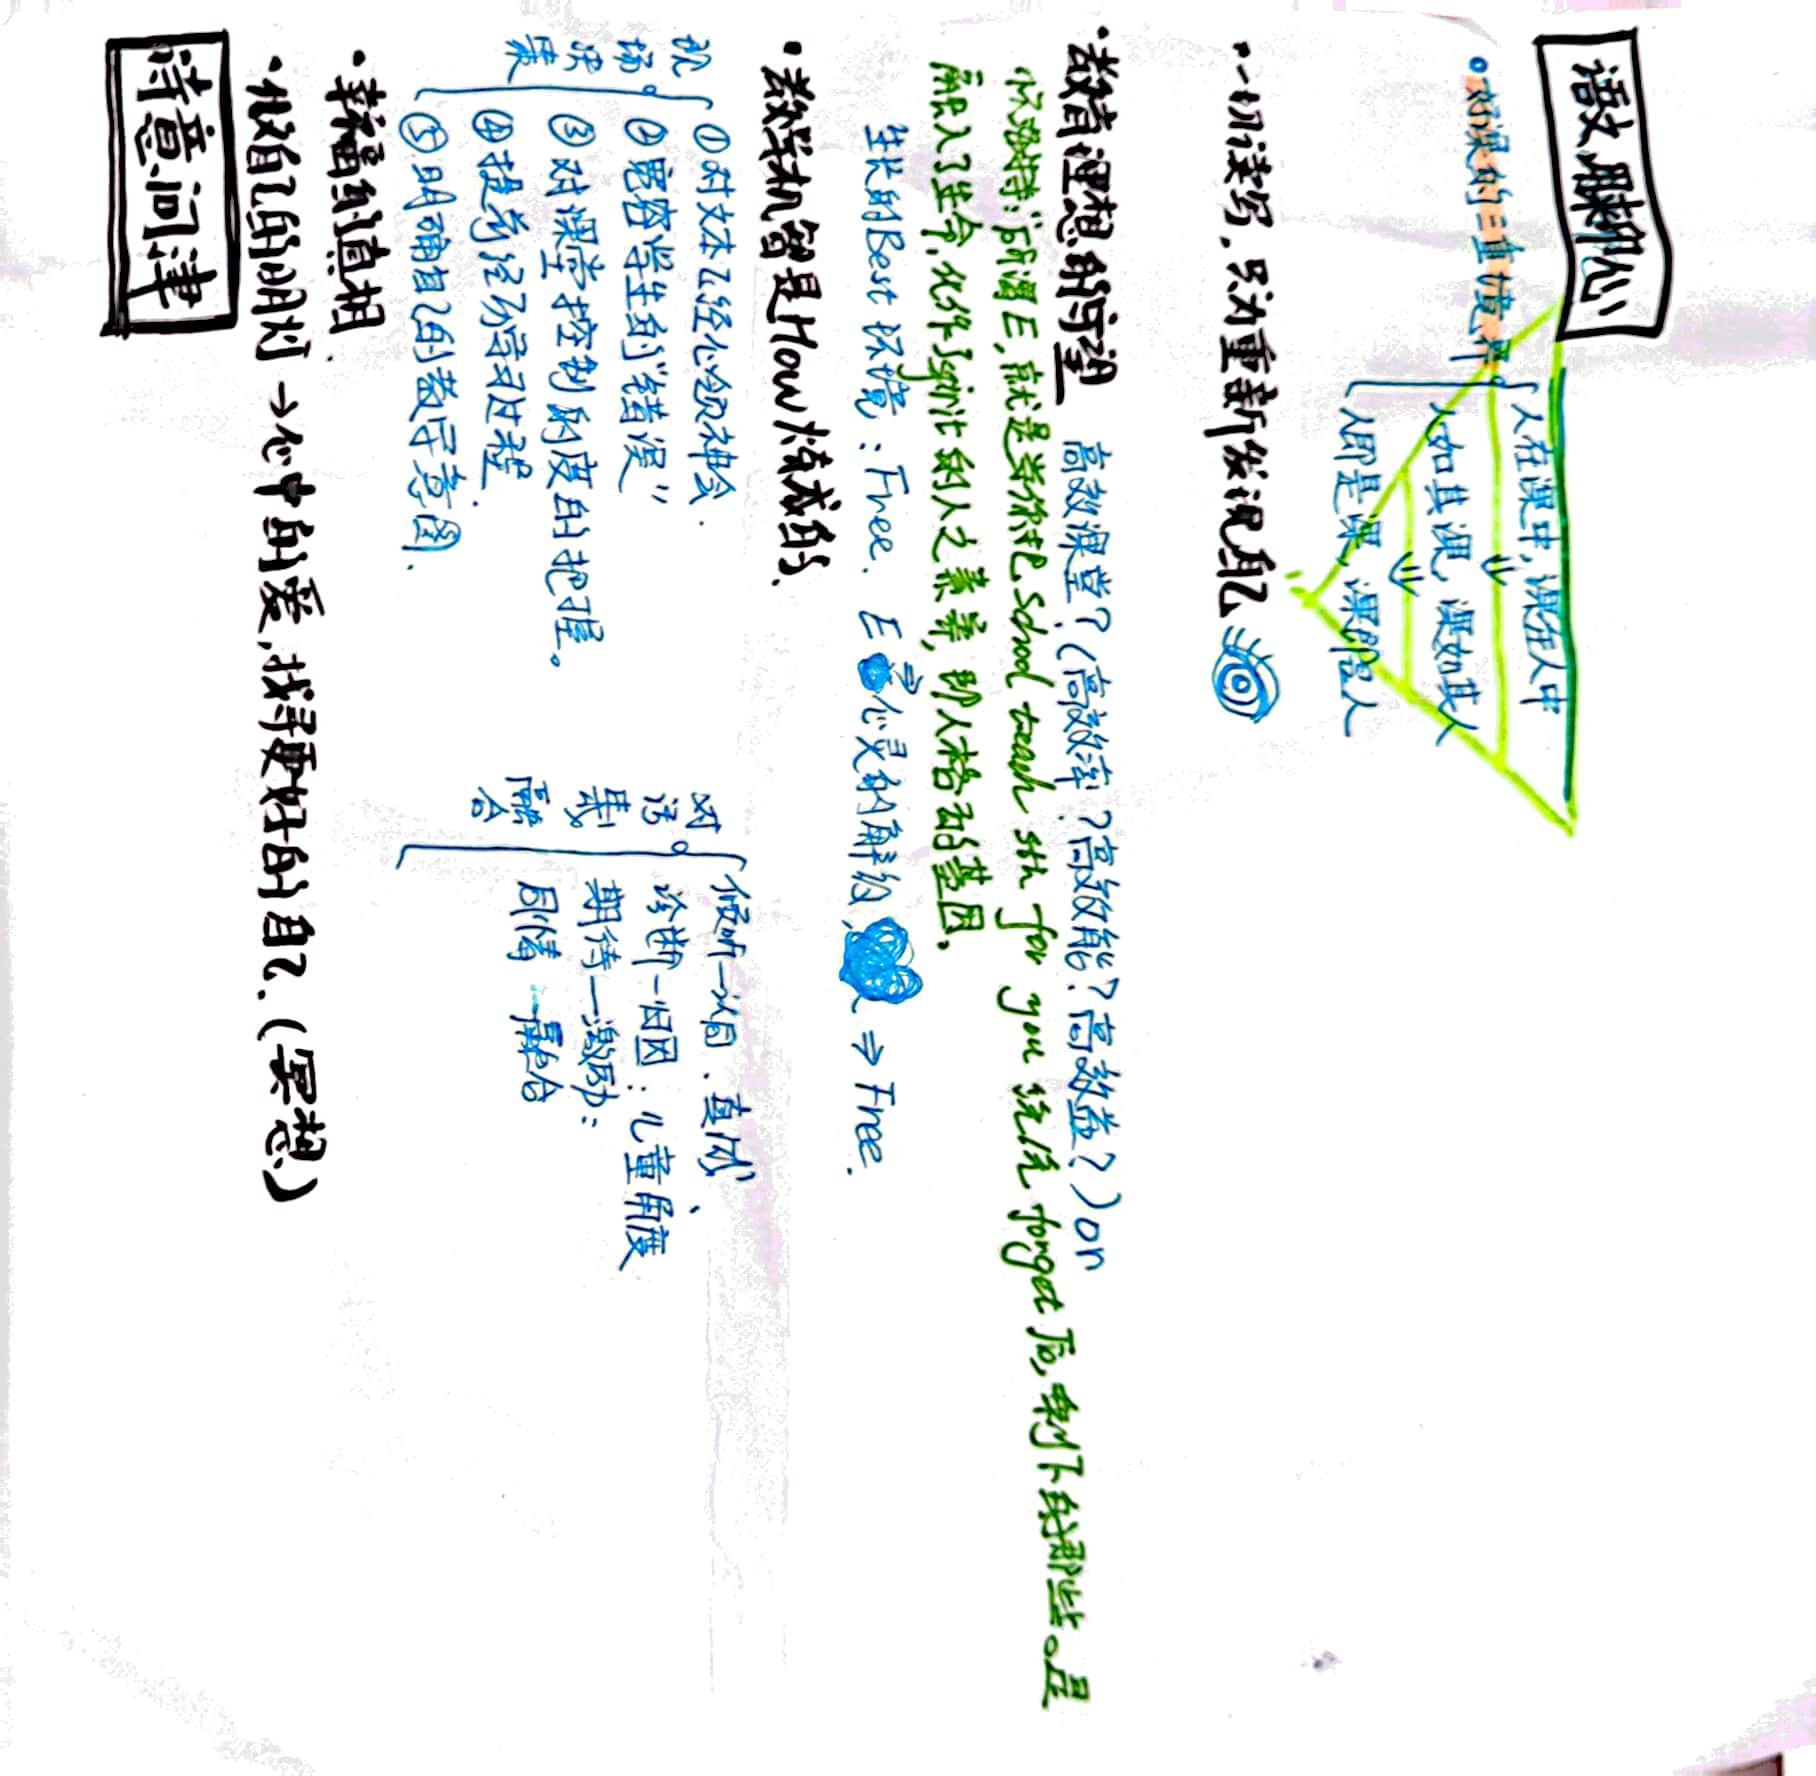 语文聊心
·好课的三重境界
人在课中，课在人中
人如其课，课如其人
人即是课，课即是人
·一切读写，只为重新发现自己
·教育理想的守望
高效课堂？（高效率？高效能？高效益？）or
怀海特：所谓E，就是当你把school teach sth for you 统统forget后，剩下的那些。是
融入了生命，化作了spirit的人之素养，即人格云的基因。
生长的Best环境：Free. E
心灵的解放，
⇒Free.
·教学机智是How炼成的.
现场决策
①对文本了经心领神会.
②包容学生的“错误”
③对课堂控制的度的把握。
④提高经历学习进程.
⑤明确自己的教学意图.
对话
融合
倾听
诊断—归因：儿童角度
期待—激励：
同情—融合
·幸福的真相.
·做自己的明灯→心中的爱，找寻更好的自己.（冥想）
诗意问津